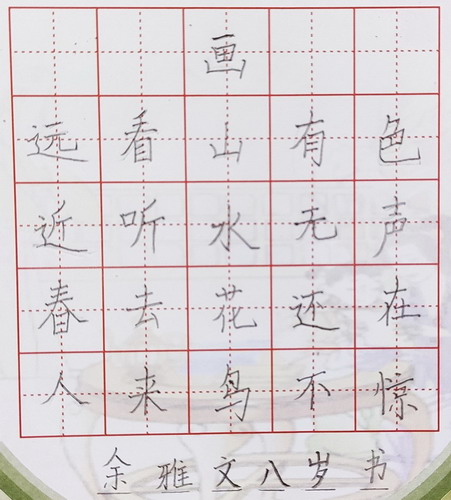 画
远看山有色
近听水无声
春去花还在
人来鸟不惊
余雅文八岁书